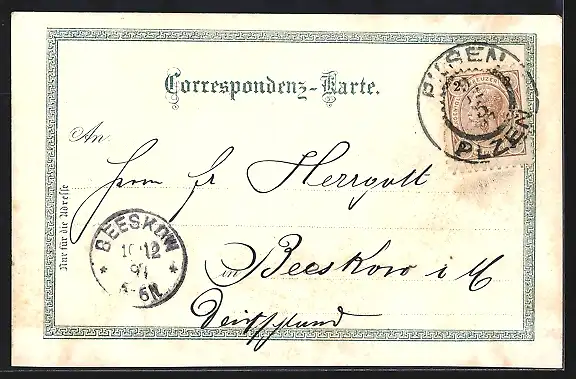 Correspondenz-Karte.
PILSEN
PLZEŇ
An
Herrn Fr Herrgott
Nur für die Adresse
BEESKOW
10 12
97
5-6N.
in Beeskow i M
Deutschland